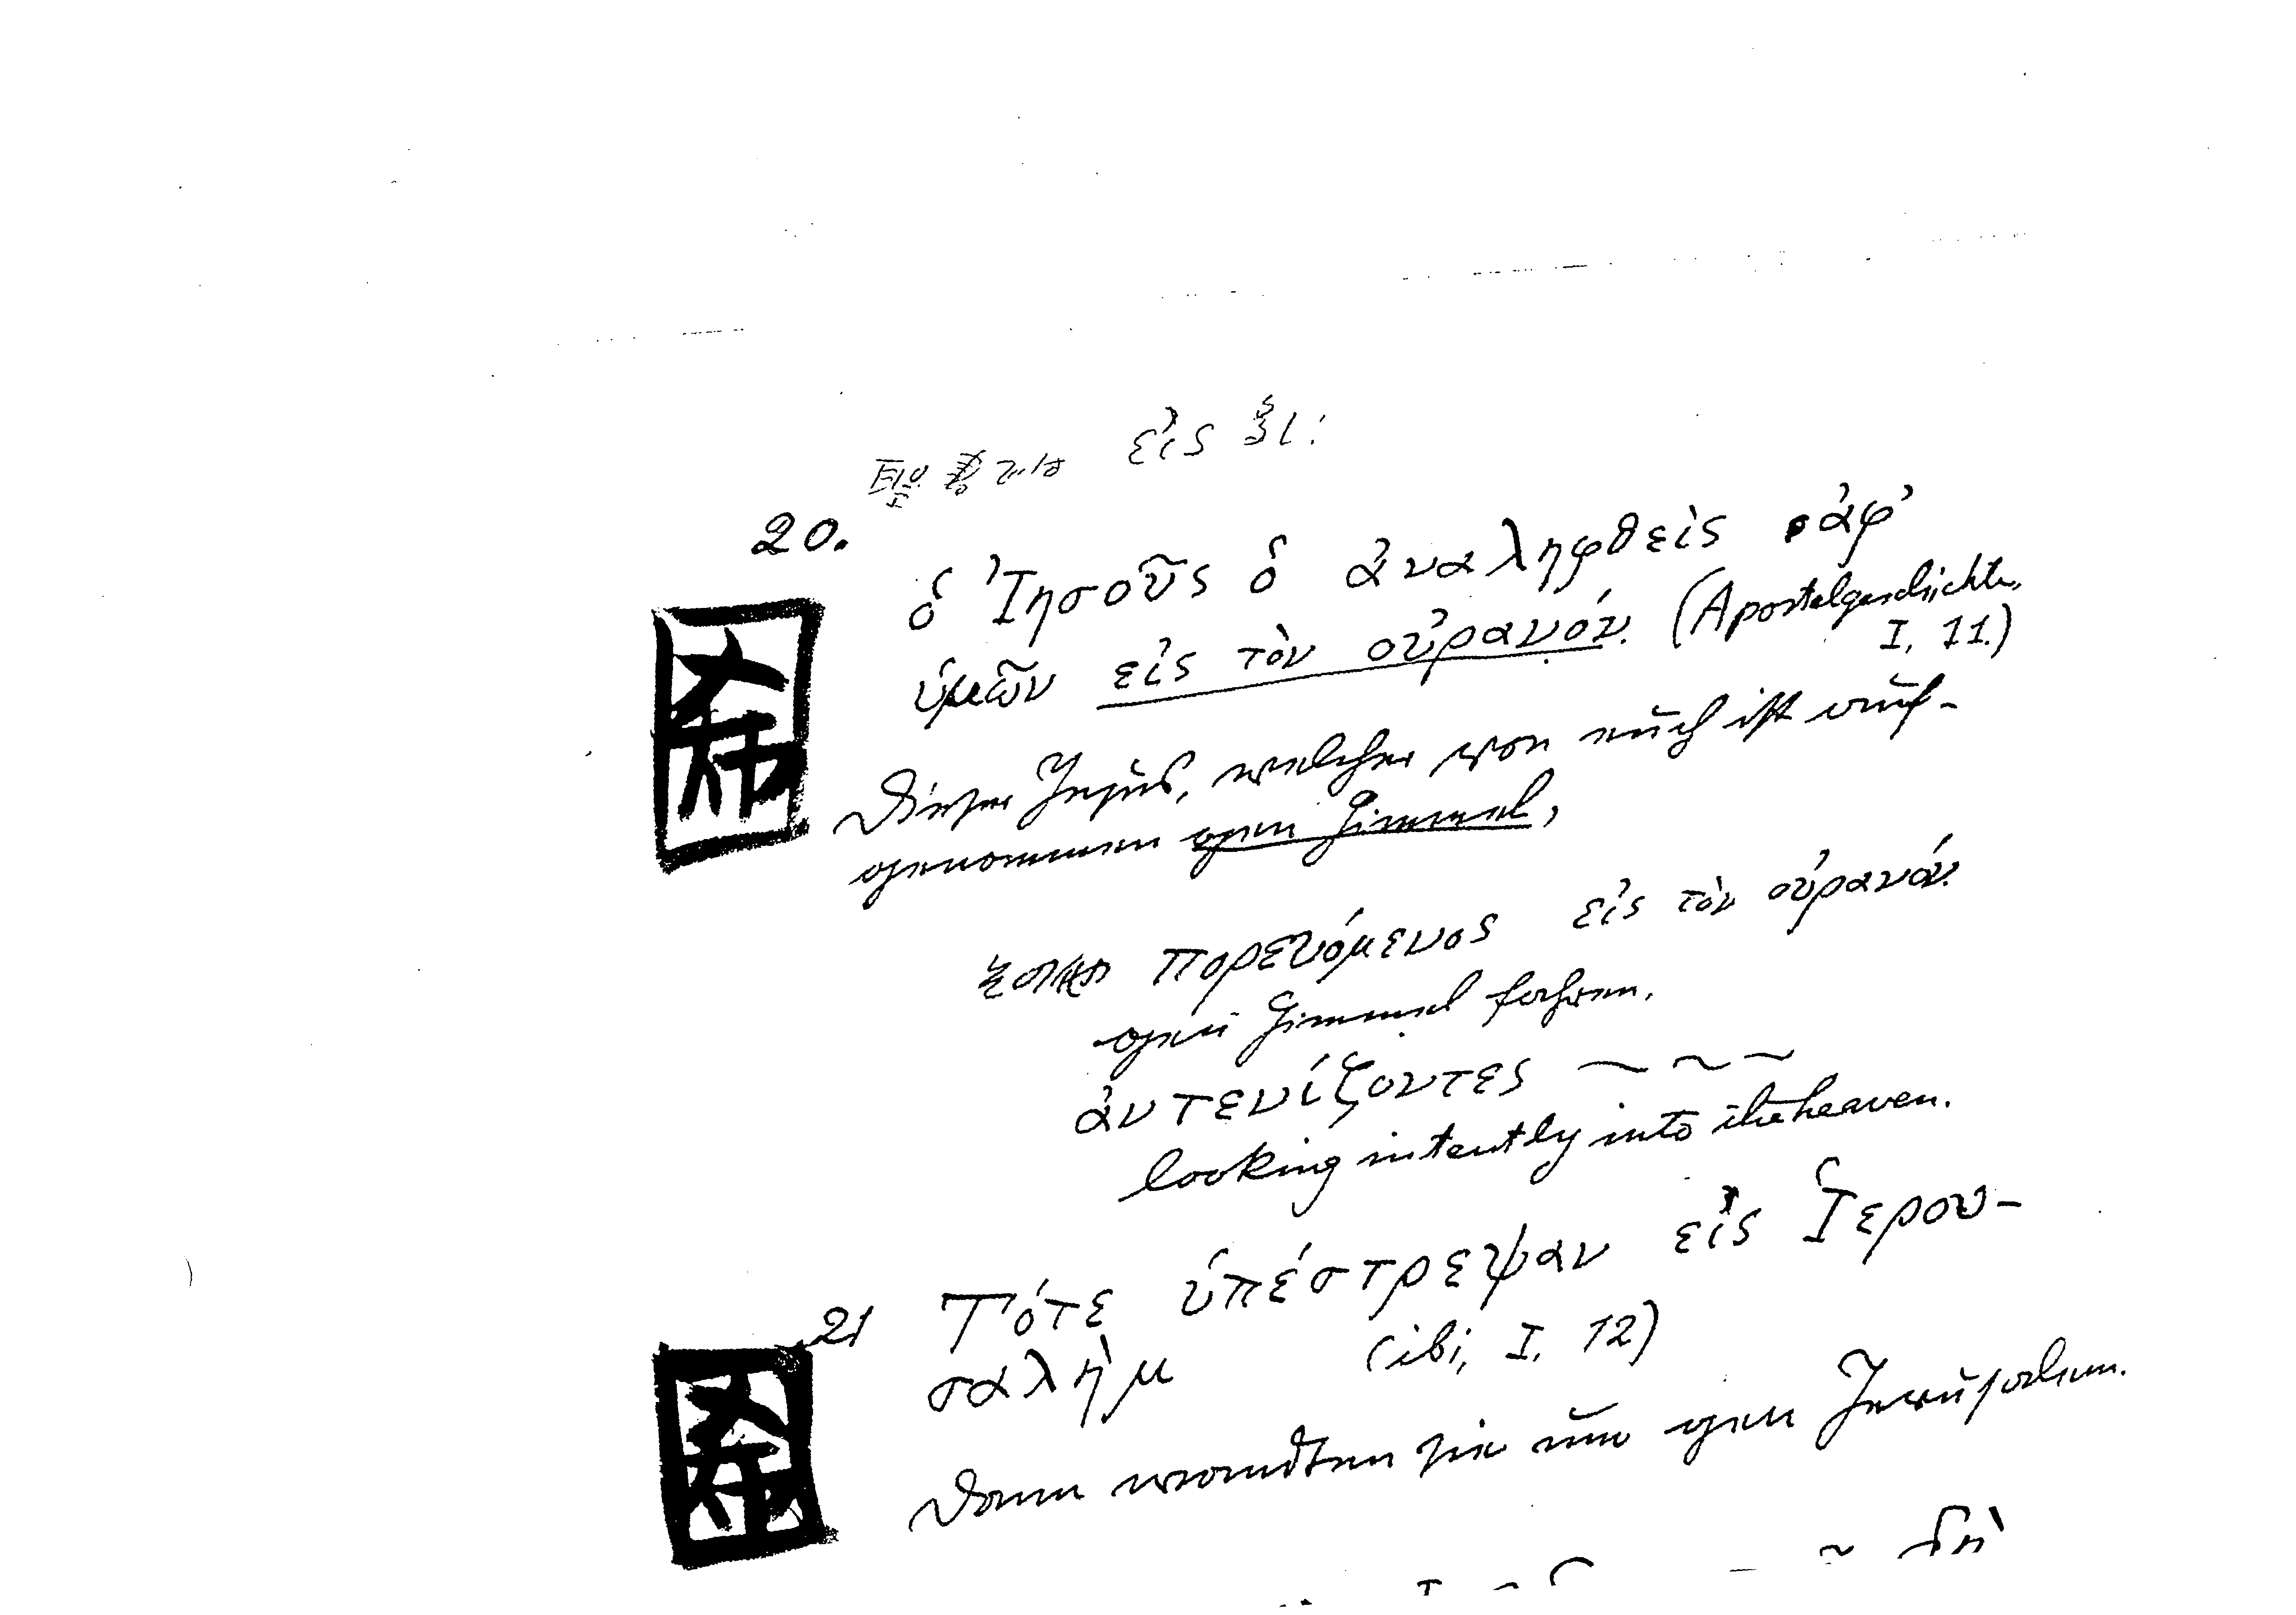 εἰς
20.
希
ὁ Ἰησοῦς ὁ ἀναληφθεὶς ἀφ'
ὑμῶν εἰς τὸν οὐρανόν. (Apostelgeschichte,
I, 11.)
Dieser Jesus, welcher von euch ist auf-
genommen gen Himmel,
πορευόμενος εἰς τὸν οὐρανόν.
gen Himmel fahren.
ἀντενίζοντες ~ ~ ~
looking intently into the heaven.
21 Τότε ὑπέστρεψαν εἰς Ἱερου-
希
σαλὴμ (ibi, I, 12)
Dann wandten sie um gen Jerusalem.